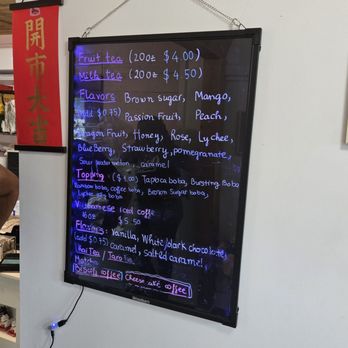 開市大吉
Fruit tea (20oz $4.00)
Milk tea (20oz $4.50)
Flavors Brown sugar, Mango,
(add $0.75) Passion Fruit, Peach,
Dragon Fruit, Honey, Rose, Lychee,
BlueBerry, Strawberry, pomegranate,
Sour watermelon, caramel
Topping: ($1.00) Tapioca boba, Bursting Boba
Rainbow boba, coffee boba, Brown Sugar boba,
Lychee jelly boba
Vietnamese iced coffe
16oz $5.50
Flavors: Vanilla, White/dark chocolate,
(add $0.75) caramel, salted caramel,
Thai Tea / Taro tea
Matcha
coffee Cheese coffee